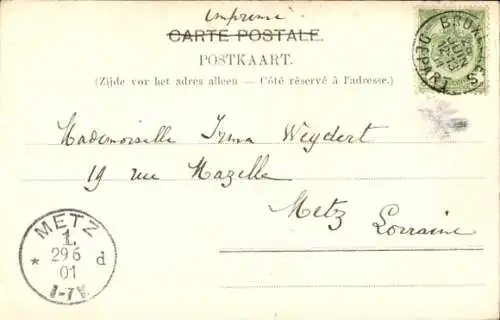 imprimé
CARTE POSTALE.
POSTKAART.
(Zijde voor het adres alleen — Côté réservé à l'adresse.)
Mademoiselle Irma Weydert
19 rue Mazelle
Metz
Lorraine
METZ
1.
29 6
01
* d
BRUXELLES
DEPART